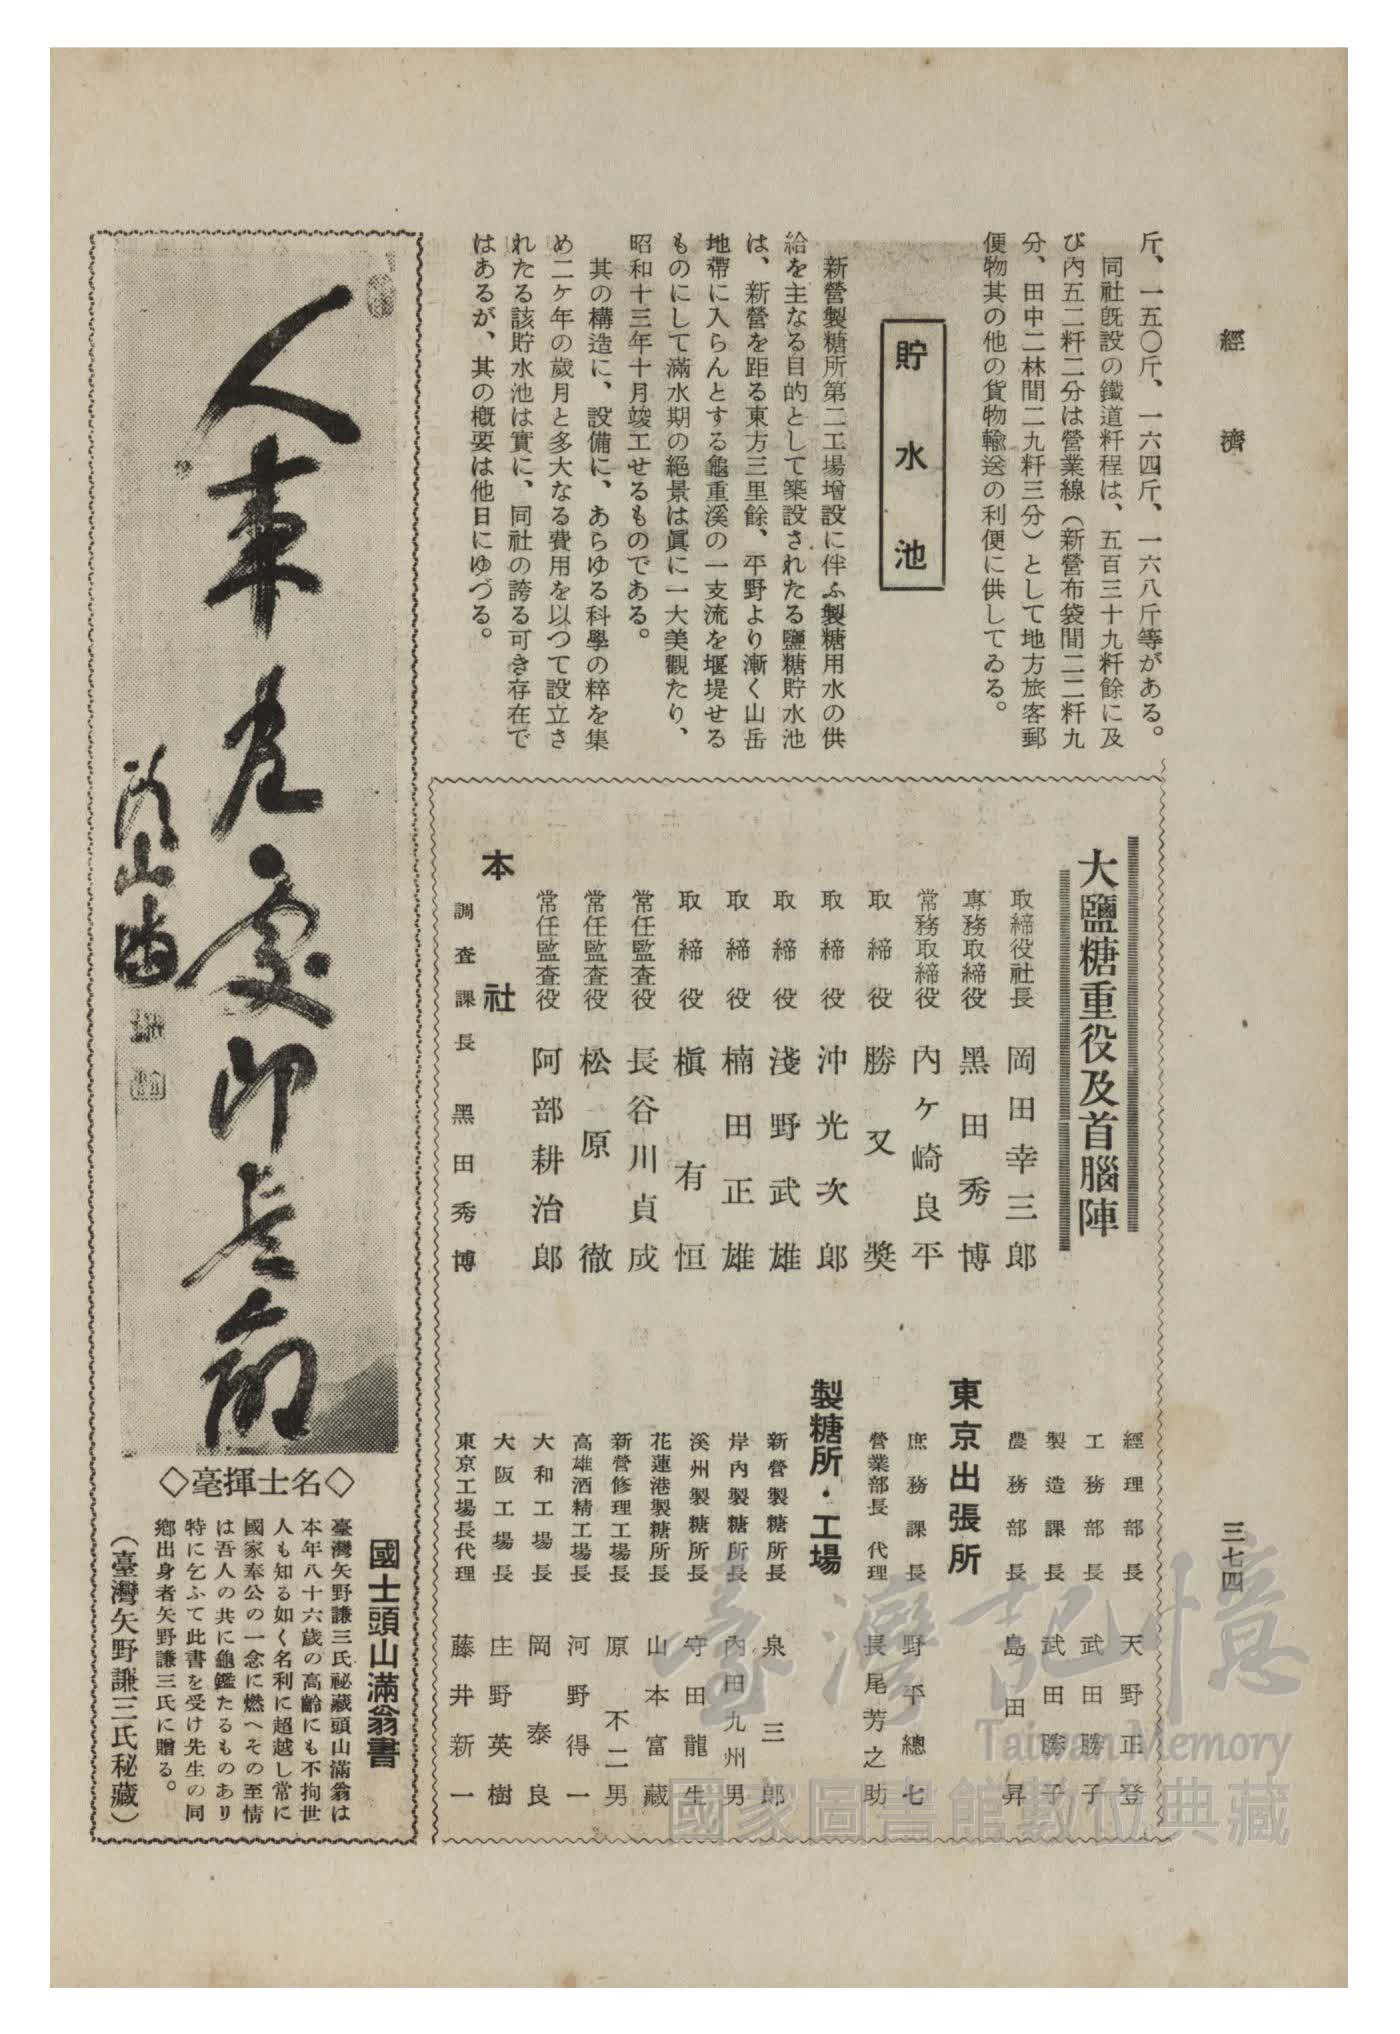 經濟
三七四
斤、一五〇斤、一六四斤、一六八斤等がある。
同社旣設の鐵道粁程は、五百三十九粁餘に及
び內五二粁二分は營業線（新營布袋間二二粁九
分、田中二林間二九粁三分）として地方旅客郵
便物其の他の貨物輸送の利便に供してゐる。
貯水池
新營製糖所第二工場增設に伴ふ製糖用水の供
給を主なる目的として築設されたる鹽糖貯水池
は、新營を距る東方三里餘、平野より漸く山岳
地帶に入らんとする龜重溪の一支流を堰堤せる
ものにして滿水期の絕景は眞に一大美觀たり、
昭和十三年十月竣工せるものである。
其の構造に、設備に、あらゆる科學の粹を集
め二ケ年の歲月と多大なる費用を以つて設立さ
れたる該貯水池は實に、同社の誇る可き存在で
はあるが、其の槪要は他日にゆづる。
大鹽糖重役及首腦陣
取締役社長 岡田幸三郞
專務取締役 黑田秀博
常務取締役 內ケ崎良平
取締役 勝又奬
取締役 沖光次郞
取締役 淺野武雄
取締役 楠田正雄
取締役 槇有恒
常任監查役 長谷川貞成
常任監查役 松原徹
常任監查役 阿部耕治郞
本社
調查課長 黑田秀博
經理部長 天野正登
工務部長 武田勝子
製造課長 武田勝子
農務部長 島田昇
東京出張所
庶務課長 野平總七
營業部長代理 長尾芳之助
製糖所・工場
新營製糖所長 泉三郞
岸內製糖所長 內田九州男
溪州製糖所長 守田龍生
花蓮港製糖所長 山本富藏
新營修理工場長 原不二男
高雄酒精工場長 河野得一
大和工場長 岡泰良
大阪工場長 庄野英樹
東京工場長代理 藤井新一
◇名士揮毫◇
國士頭山滿翁書
臺灣矢野謙三氏祕藏頭山滿翁は
本年八十六歲の高齡にも不拘世
人も知る如く名利に超越し常に
國家奉公の一念に燃へその至情
は吾人の共に龜鑑たるものあり
特に乞ふて此書を受け先生の同
鄕出身者矢野謙三氏に贈る。
（臺灣矢野謙三氏秘藏）
臺灣記憶
Taiwan Memory
國家圖書館數位典藏